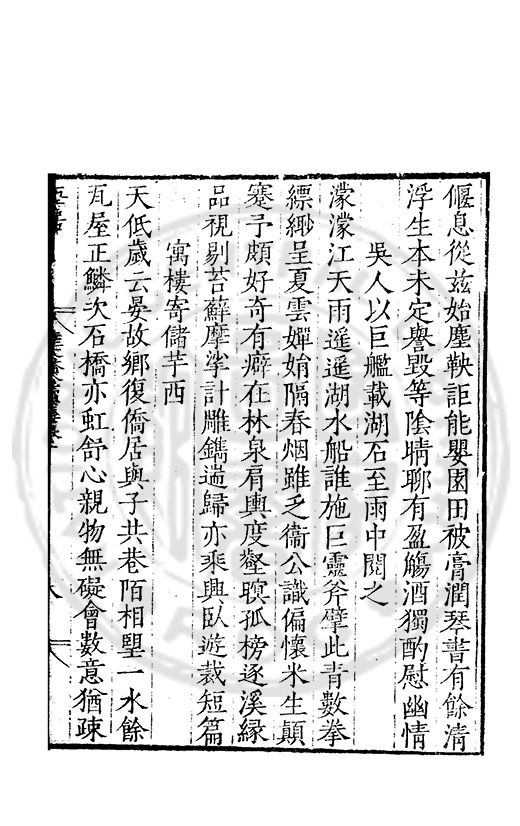 偃息從茲始塵鞅詎能嬰園田被膏潤琴書有餘清
浮生本未定譽毀等陰晴聊有盈觴酒獨酌慰幽情
吳人以巨艦載湖石至雨中閱之
濛濛江天雨遥遥湖水船誰施巨靈斧擘此青數拳
縹緲呈夏雲嬋娟隔春烟雖乏衞公識偏懷米生顛
蹇予頗好奇有癖在林泉肩輿度壑暝孤榜逐溪緣
品視剔苔蘚摩挲計雕鐫遄歸亦乘興臥遊裁短篇
寓樓寄儲芋西
天低歲云晏故鄉復僑居與子共巷陌相望一水餘
瓦屋正鱗次石橋亦虹舒心親物無礙會數意猶疎